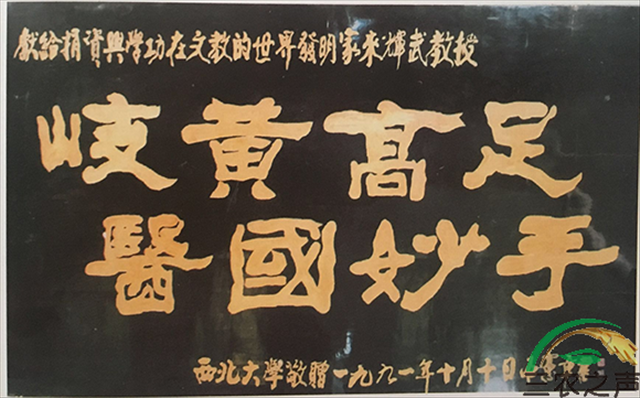 獻給捐資興學功在文教的世界發明家來輝武教授
岐黄髙足
醫國妙手
西北大學敬贈一九九一年十月十日
三农之声